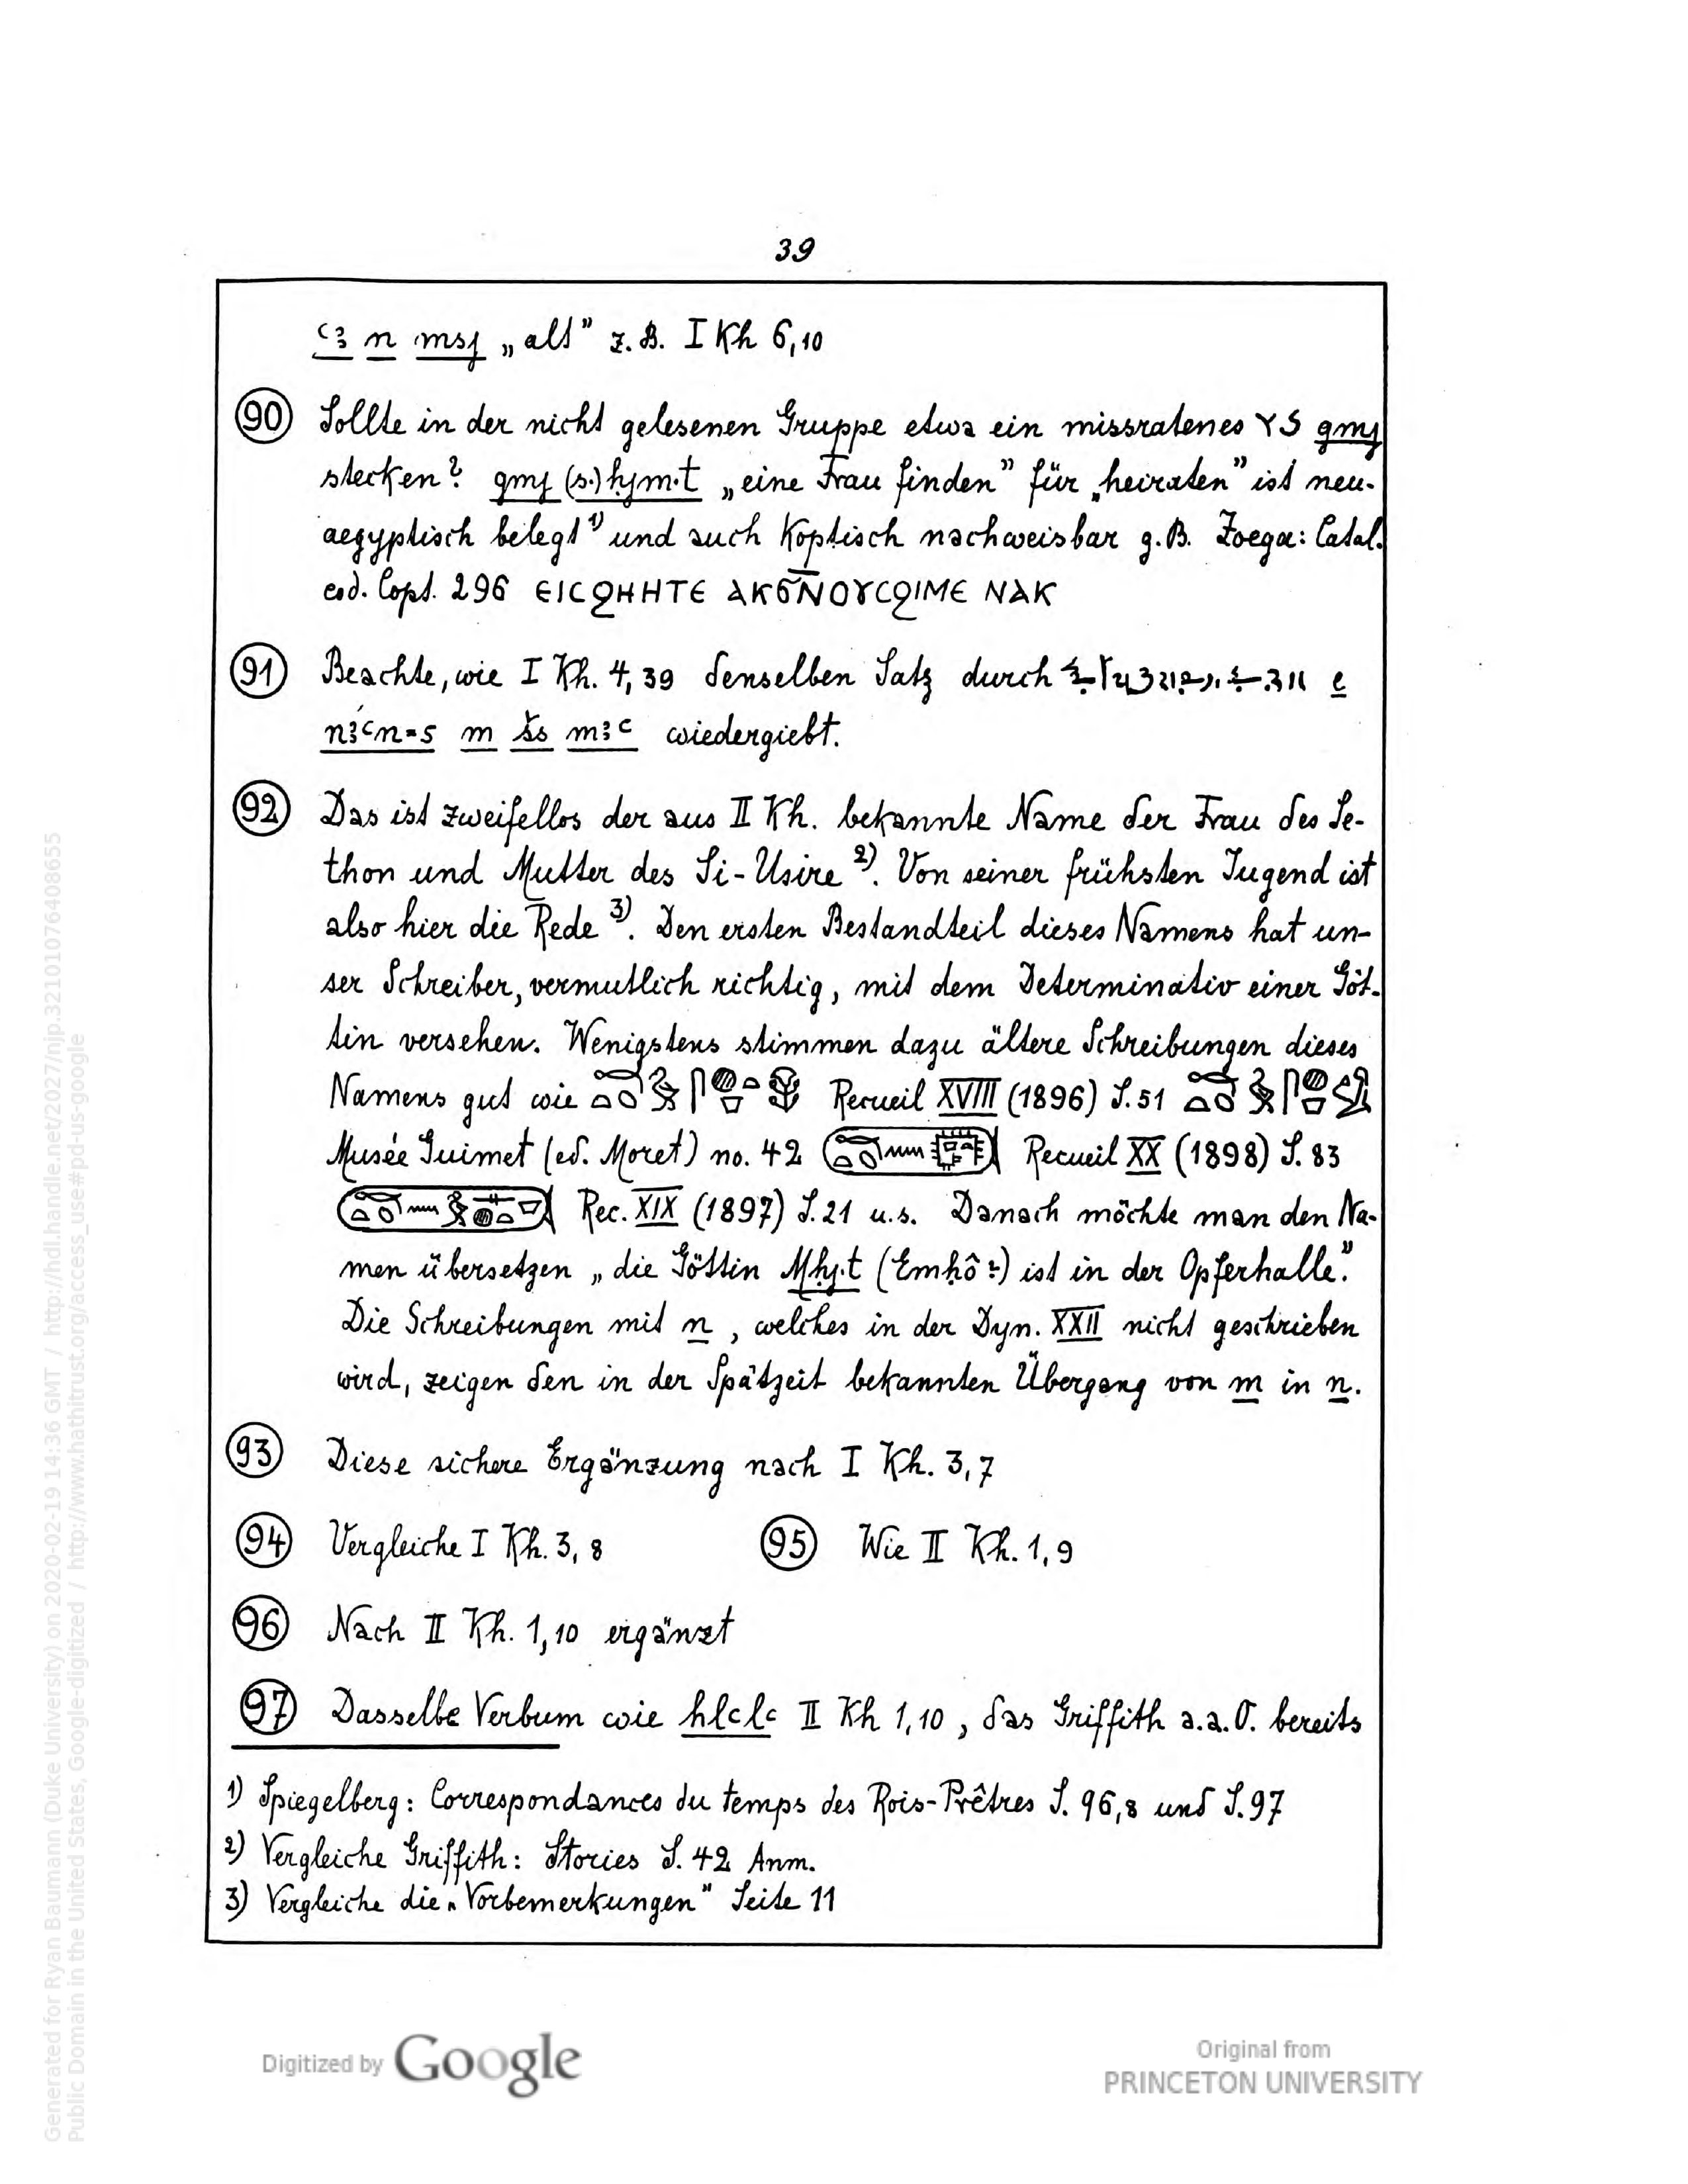 39
ꜥꜣ n msj „alt” z.B. I Kh 6,10
90 Sollte in der nicht gelesenen Gruppe etwa ein missratenes gmj
stecken? gmj (s.) ḥjm·t „eine Frau finden” für „heiraten” ist neu-
aegyptisch belegt 1) und auch Koptisch nachweisbar z.B. Zoega: Catal.
cod. Copt. 296 ⲈⲒⲤϨⲎⲎⲦⲈ ⲀⲔϬⲚ̅ⲞⲨⲤϨⲒⲘⲈ ⲚⲀⲔ
91 Beachte, wie I Kh. 4,39 denselben Satz durch e
nꜣꜥn=s m šs mꜣꜥ wiedergiebt.
92 Das ist zweifellos der aus II Kh. bekannte Name der Frau des Se-
thon und Mutter des Si-Usire 2). Von seiner frühsten Jugend ist
also hier die Rede 3). Den ersten Bestandteil dieses Namens hat un-
ser Schreiber, vermutlich richtig, mit dem Determinativ einer Göt-
tin versehen. Wenigstens stimmen dazu ältere Schreibungen dieses
Namens gut wie Recueil XVIII (1896) S. 51
Musée Guimet (ed. Moret) no. 42 Recueil XX (1898) S. 83
Rec. XIX (1897) S. 21 u.s. Danach möchte man den Na-
men übersetzen „die Göttin Mḥj.t (Emḥô?) ist in der Opferhalle.”
Die Schreibungen mit n, welches in der Dyn. XXII nicht geschrieben
wird, zeigen den in der Spätzeit bekannten Übergang von m in n.
93 Diese sichere Ergänzung nach I Kh. 3,7
94 Vergleiche I Kh. 3,8 95 Wie II Kh. 1,9
96 Nach II Kh. 1,10 ergänzt
97 Dasselbe Verbum wie hlꜥlꜥ II Kh 1,10, das Griffith a.a.O. bereits
1) Spiegelberg: Correspondances du temps des Rois-Prêtres S. 96,8 und S. 97
2) Vergleiche Griffith: Stories S. 42 Anm.
3) Vergleiche die „Vorbemerkungen” Seite 11
Digitized by Google
Original from
PRINCETON UNIVERSITY
Generated for Ryan Baumann (Duke University) on 2020-02-19 14:36 GMT / http://hdl.handle.net/2027/njp.32101076408655
Public Domain in the United States, Google-digitized / http://www.hathitrust.org/access_use#pd-us-google